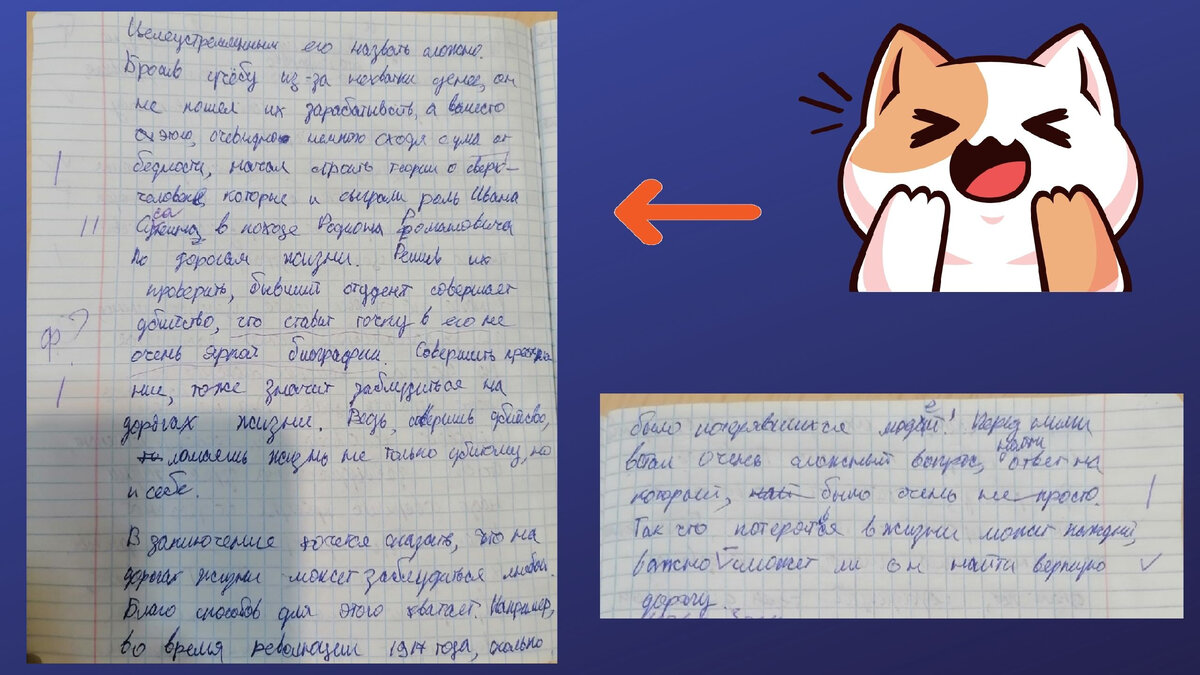 Целеустремленным его назвать сложно.
Бросив учёбу из-за нехватки денег, он
не пошел их зарабатывать, а вместо
этого, очевидно немного сходя с ума от
бедности, начал строить теории о сверх-
человеке, которые и сыграли роль Ивана
Сусанина в походе Родиона Романовича
по дорогам жизни. Решив их
проверить, бывший студент совершает
убийство, что ставит точку в его не
ф?
очень яркой биографии. Совершить преступле
ние, тоже значит заблудиться на
дорогах жизни. Ведь, совершив убийство,
ломаешь жизнь не только убитому, но
и себе.
В заключение хочется сказать, что на
дорогах жизни может заблудиться любой.
Благо способов для этого хватает. Например,
во время революции 1917 года, сколько
было потерявшихся людей! Перед ними
встал очень сложный вопрос, найти ответ на
который, было очень не просто.
Так что потеряться в жизни может каждый,
важно сможет ли он найти верную
дорогу.